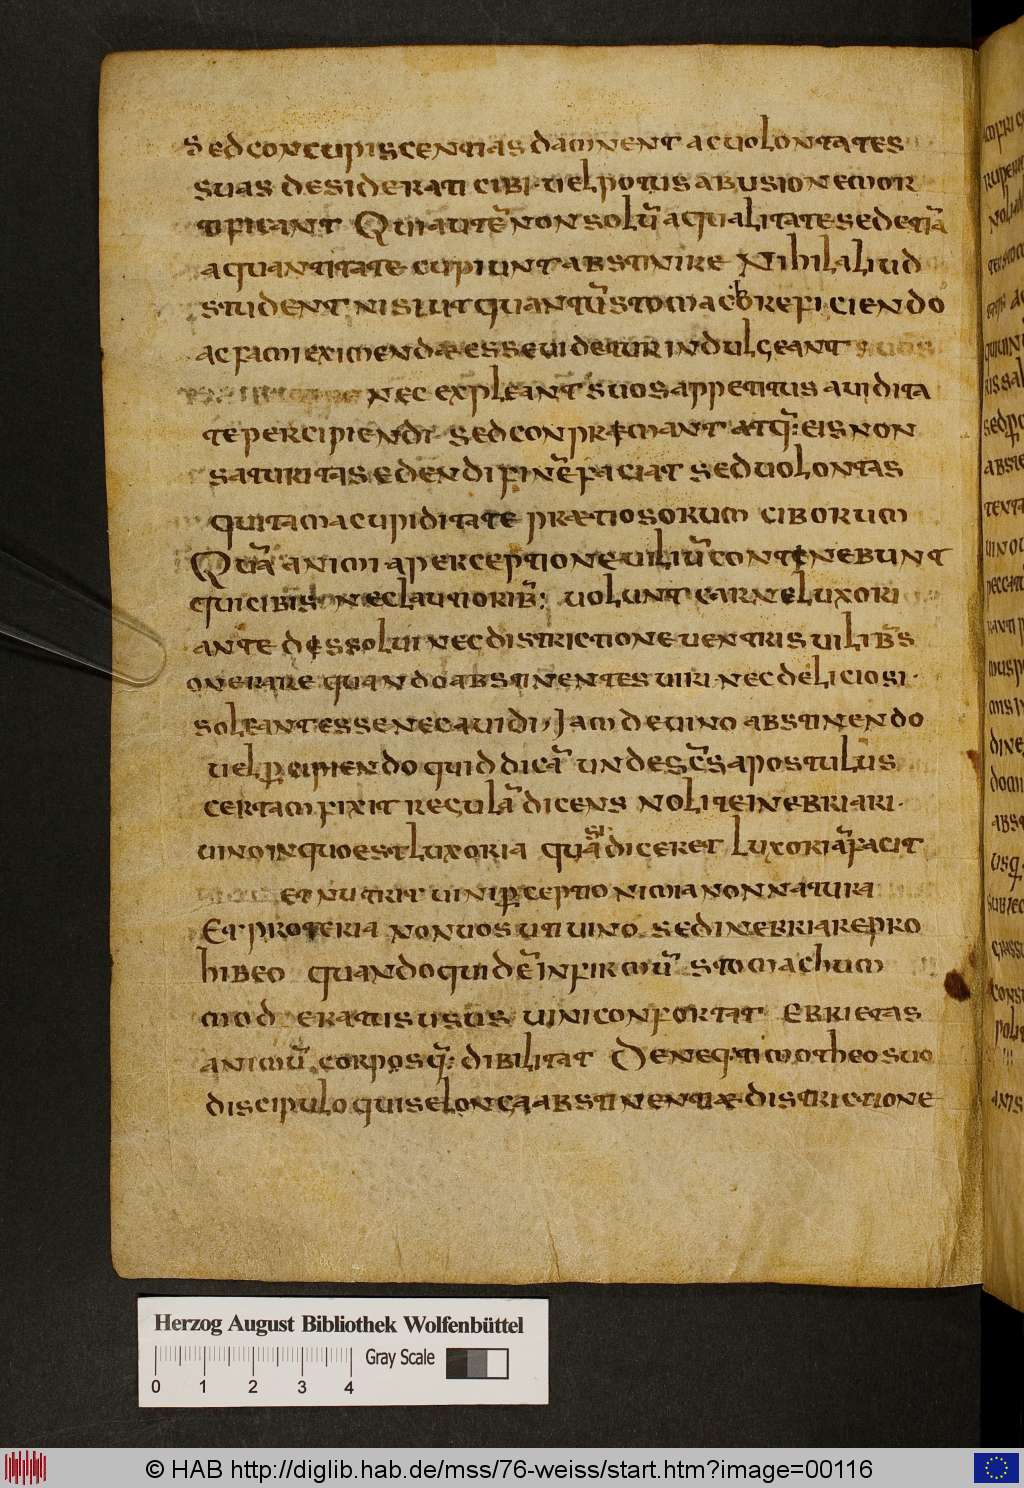 sed concupiscentias damnent ac uolontates
suas desiderati cibi uel potus abusione mor
tificant Qui autē non solū a qualitate sed etiā
a quantitate cupiunt abstinire Nihil aliud
student nisi ut quantū stomacho reficiendo
ac fami eximendæ esse uidetur indulgeant
nec expleant suos appetitus auidita
te percipiendi sed con præmant atq: eis non
saturitas edendi finē faciat sed uolontas
qui tam a cupiditate prætiosorum ciborum
Quā animi a perceptione uiliū contenebunt
qui cibis nec lautiorib: uolunt carne luxori
ante dissolui nec districtione uentris uilibs
onerare quando abstinentes uiri nec deliciosi.
soleant esse nec auidi, Iam de uino abstinendo
uel pcipiendo quid dicā unde scs apostulus
certam fixit regulā dicens nolite inebriari.
uino in quo est luxoria quasi diceret luxoriā facit
et nutrit uini pceptio nimia non natura
Et pro teria non uos uti uino. sed inebriare pro
hibeo quando quidē infirmū stomachum
moderatis usus uini confortat Ebrietas
animū corposq: dibilitat Deneq: timotheo suo
discipulo qui se longa abstinentiæ districtione
Herzog August Bibliothek Wolfenbüttel
Gray Scale
0 1 2 3 4
© HAB http://diglib.hab.de/mss/76-weiss/start.htm?image=00116